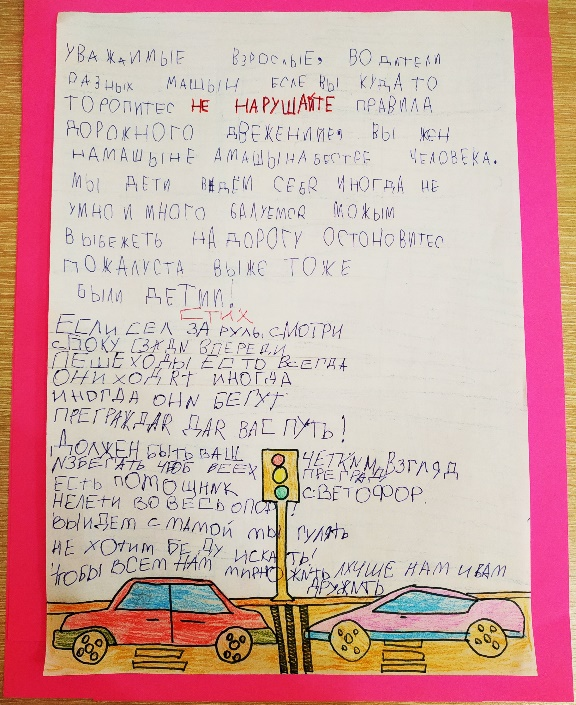 УВАЖАИМЫЕ ВЗРОСЛЫЕ, ВОДИТЕЛИ
РАЗНЫХ МАШЫН ЕСЛЕ ВЫ КУДА ТО
ТОРОПИТЕС НЕ НАРУШАЙТЕ ПРАВИЛА
ДОРОЖНОГО ДВЕЖЕНИИЕ, ВЫ ЖЕН
НАМАШЫНЕ АМАШЫНАБЕСТРЕ ЧЕЛОВЕКА.
МЫ ДЕТИ ВЕДЕМ СЕБЯ ИНОГДА НЕ
УМНО И МНОГО БАЛУЕМСЯ МОЖЫМ
ВЫБЕЖЕТЬ НА ДОРОГУ ОСТОНОВИТЕС
ПОЖАЛУСТА ВЫЖЕ ТОЖЕ
БЫЛИ ДЕТМИ!
СТИХ
ЕСЛИ СЕЛ ЗА РУЛЬ, СМОТРИ
СПОКУ СЗАДИ ВПЕРЕДИ
ПЕШЕХОДЫ ЕСТЬ ВСЕГДА
ОНИ ХОДЯТ ИНОГДА
ИНОГДА ОНИ БЕГУТ
ПРЕГРАЖДАЯ ДЛЯ ВАС ПУТЬ!
ДОЛЖЕН БЫТЬ ВАШ ЧЕТКИМ ВЗГЛЯД
ИЗБЕГАТЬ ЧТОБ ВСЕХ ПРЕГРАД
ЕСТЬ ПОМОЩНИК СВЕТОФОР.
НЕЛЕТИ ВО ВЕСЬ ОПОР!
ВЫИДЕМ С МАМОЙ МЫ ГУЛЯТЬ
НЕ ХОТИМ БЕДУ ИСКАТЬ!
ЧТОБЫ ВСЕМ НАМ МИРНО ЖИТЬ ЛУЧШЕ НАМ И ВАМ
ДРУЖИТЬ